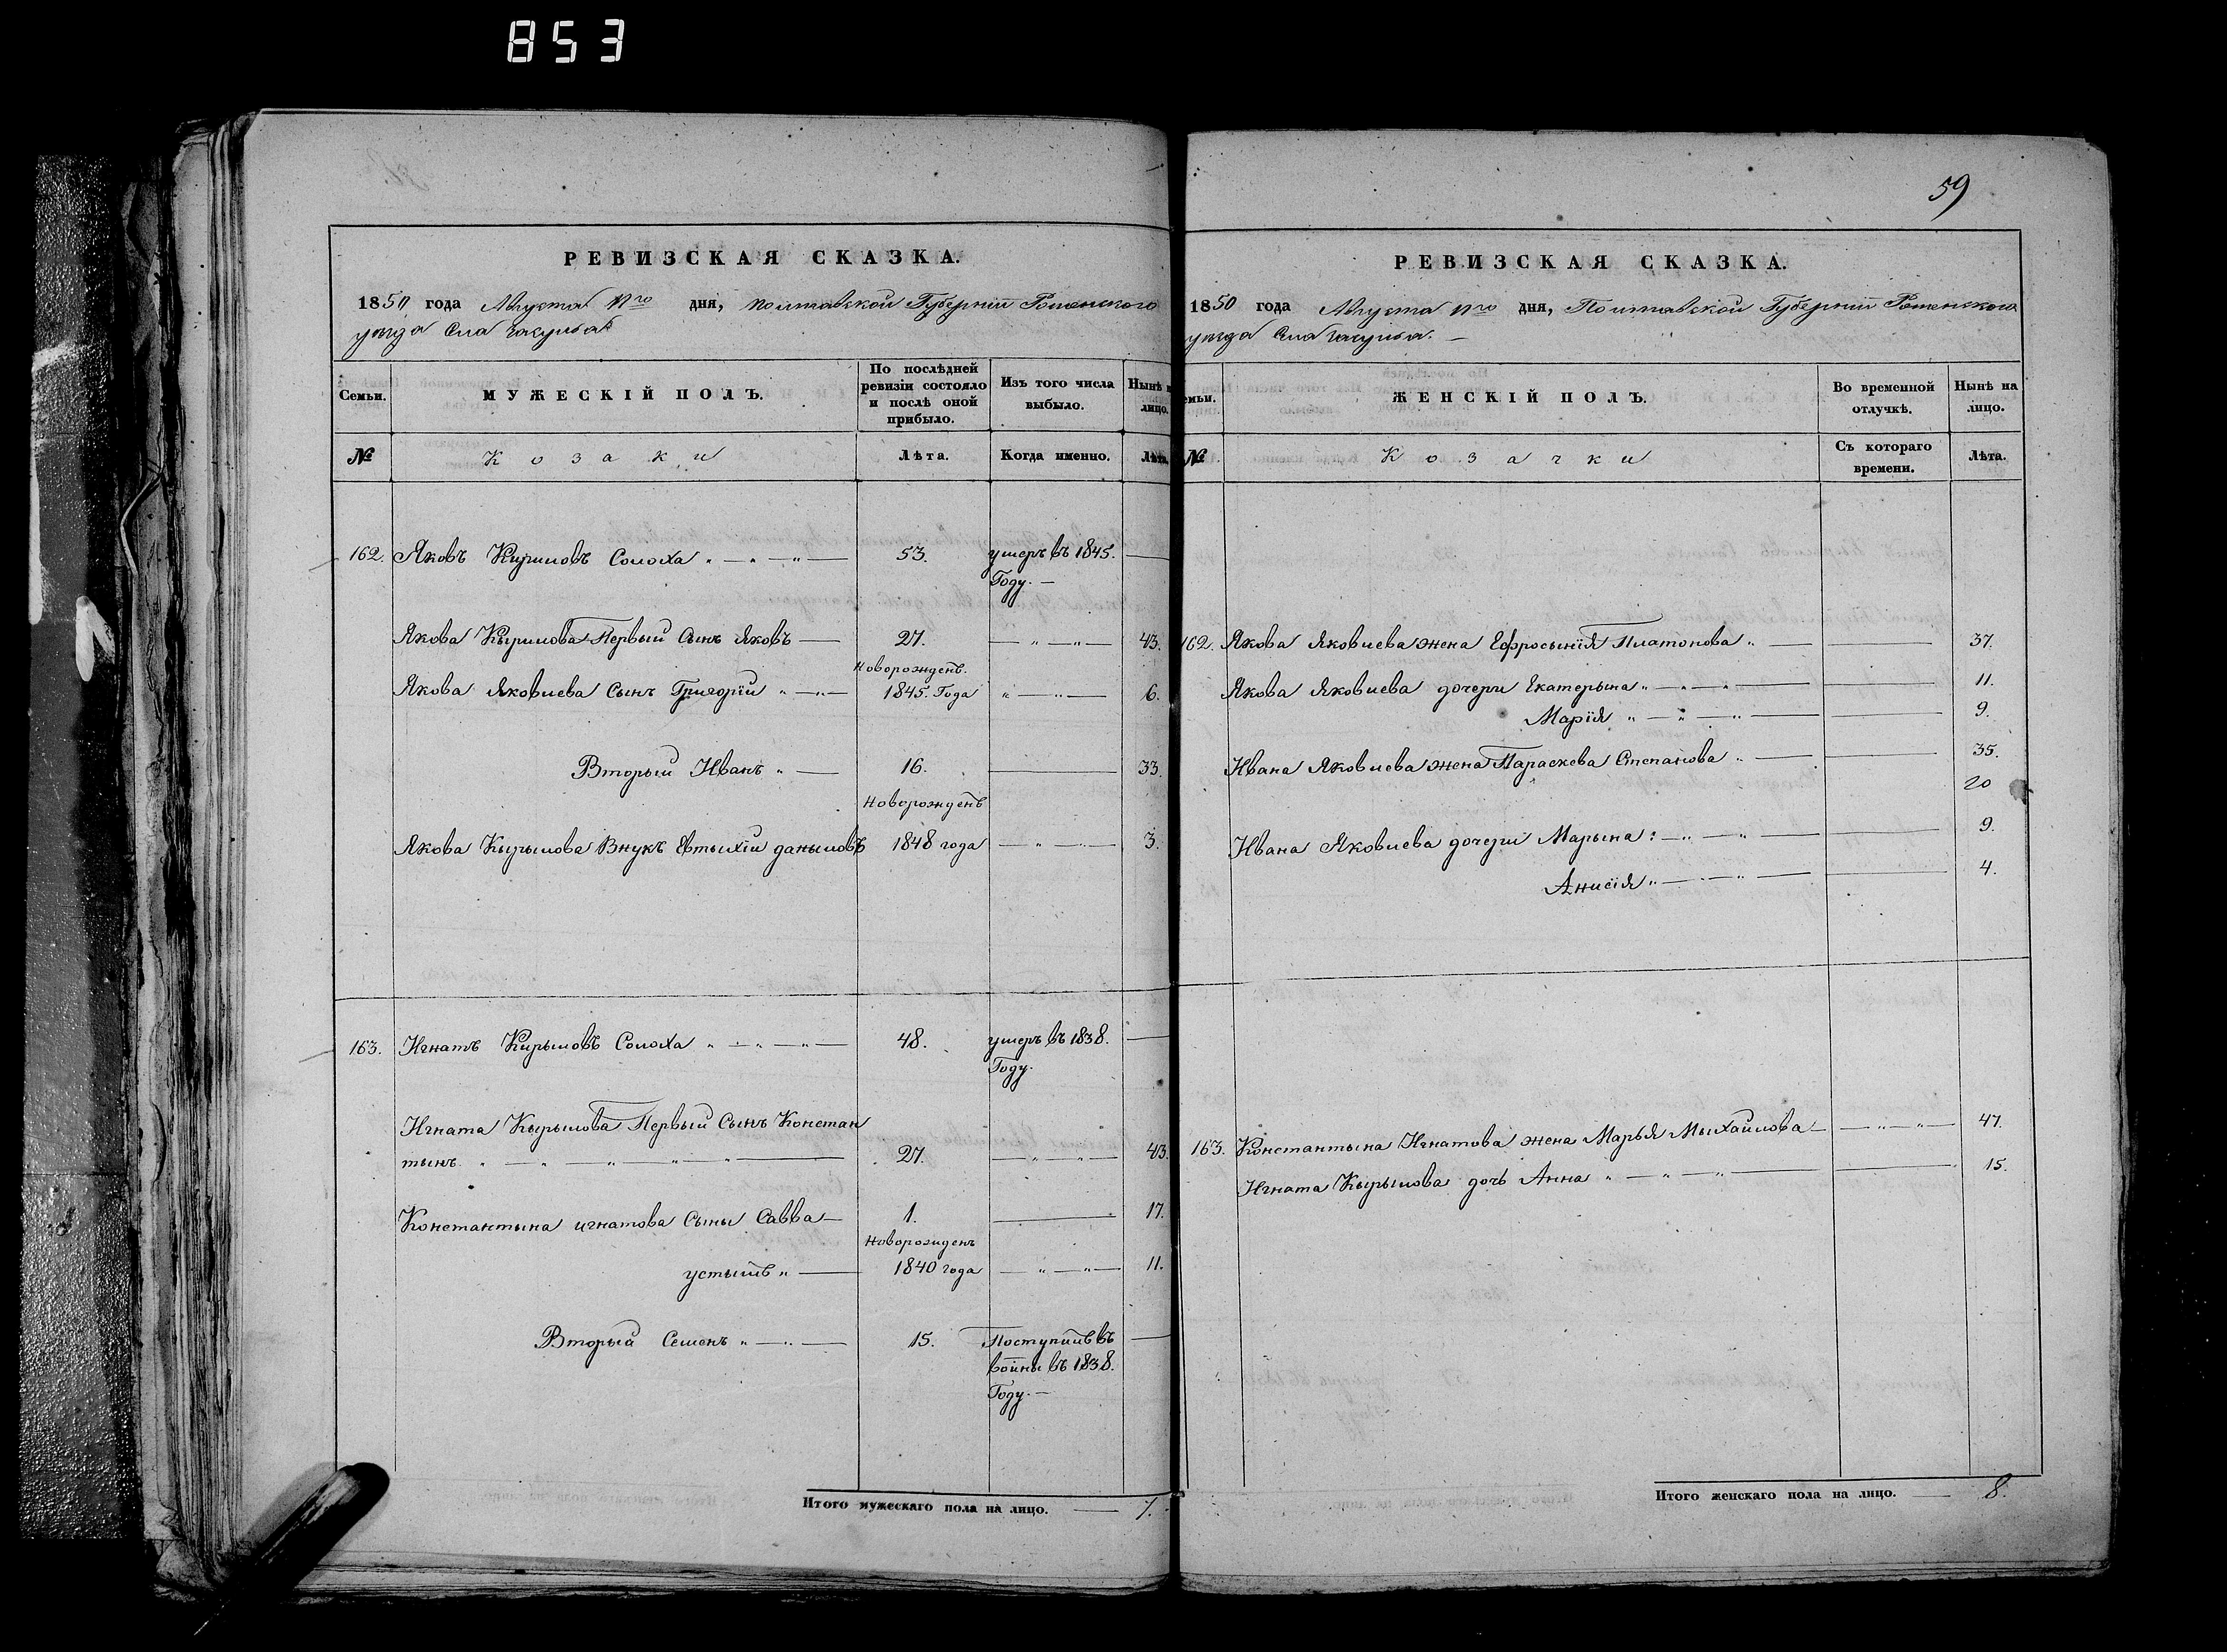 853
РЕВИЗСКАЯ СКАЗКА.
1850 года Августа дня, Полтавской Губернии Роменского
уезда Села
Семьи.
МУЖЕСКІЙ ПОЛЪ.
По послѣдней
ревизіи состояло
и послѣ оной
прибыло.
Изъ того числа
выбыло.
Нынѣ н
лицо.
№
Козаки
Лѣта.
Когда именно.
Лѣта.
162. Яковъ Кириловъ Солоха 53. умеръ въ 1845.
Году.
Якова Кырилова Первый Сынъ Яковъ 27. 43.
Новорожденъ.
Якова Яковлева Сынъ Григорій 1845. Года 6.
Вторый Иванъ 16. 33.
Новорожденъ
Якова Кырылова Внукъ Евтыхій даныловъ 1848 года 3.
163. Игнатъ Кирыловъ Солоха 48. умеръ въ 1838.
Году.
Игната Кырылова Первый Сынъ Констан
тынъ. 27. 43.
Константына игнатова Сыны Савва 1. 17.
Новорожденъ
устынъ 1840 года 11.
Вторый Семенъ 15. Поступилъ въ
воины въ 1838.
Году.
Итого мужескаго пола на лицо. 7.
59
РЕВИЗСКАЯ СКАЗКА.
1850 года Августа дня, Полтавской Губерніи Роменского
уезда Села
емьи.
ЖЕНСКІЙ ПОЛЪ.
Во временной
отлучкѣ.
Нынѣ на
лицо.
№
Козачки
Съ котораго
времени.
Лѣта.
162. Якова Яковлева жена Ефросынія Платонова 37.
Якова Яковлева дочери Екатерына 11.
Марія 9.
Ивана Яковлева жена Параскева Степанова 35.
20
Ивана Яковлева дочери Марына 9.
Анисія 4.
163. Константына Игнатова жена Марья Мыхайлова 47.
Игната Кырылова дочь Анна 15.
Итого женскаго пола на лицо. 8.